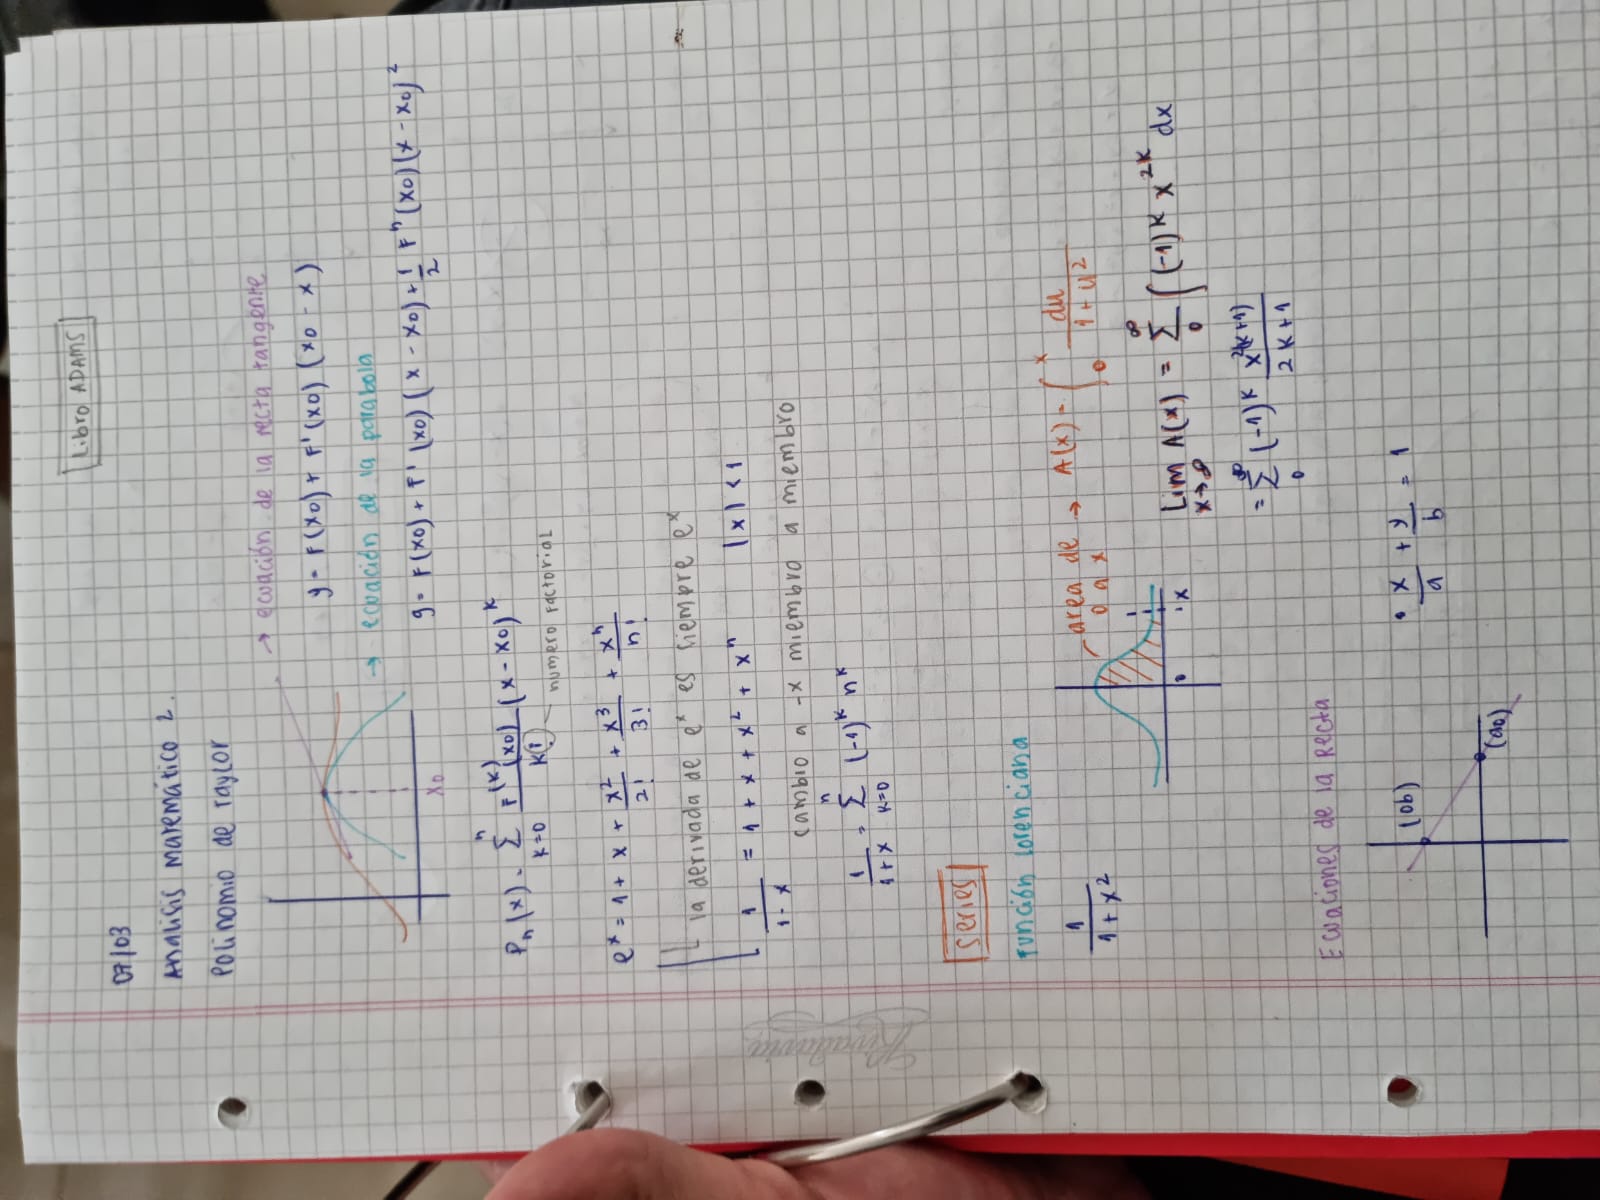 Libro ADAMS
07/03
Analisis matemático 2.
Polinomio de taylor
→ ecuación de la recta tangente
y = F(x0) + F'(x0) (x0 - x)
→ ecuación de la parabola
y = F(x0) + F'(x0) (x - x0) + 1/2 F''(x0) (x - x0)²
x0
Pn(x) = Σ k=0 n F^(k)(x0)/k! (x - x0)^k
numero factorial
e^x = 1 + x + x²/2! + x³/3! + x^n/n!
la derivada de e^x es siempre e^x
1/(1 - x) = 1 + x + x² + x^n |x| < 1
cambio a -x miembro a miembro
1/(1 + x) = Σ k=0 n (-1)^k n^k
Rivadavia
series
Función lorenciana
1/(1 + x²)
area de 0 a x → A(x) = ∫ 0 x du/(1 + u²)
0 x
Lim x→∞ A(x) = Σ 0 ∞ ∫ (-1)^k x^2k dx
= Σ 0 ∞ (-1)^k x^2(k+1)/(2k+1)
Ecuaciones de la Recta
(0b)
• x/a + y/b = 1
(a0)